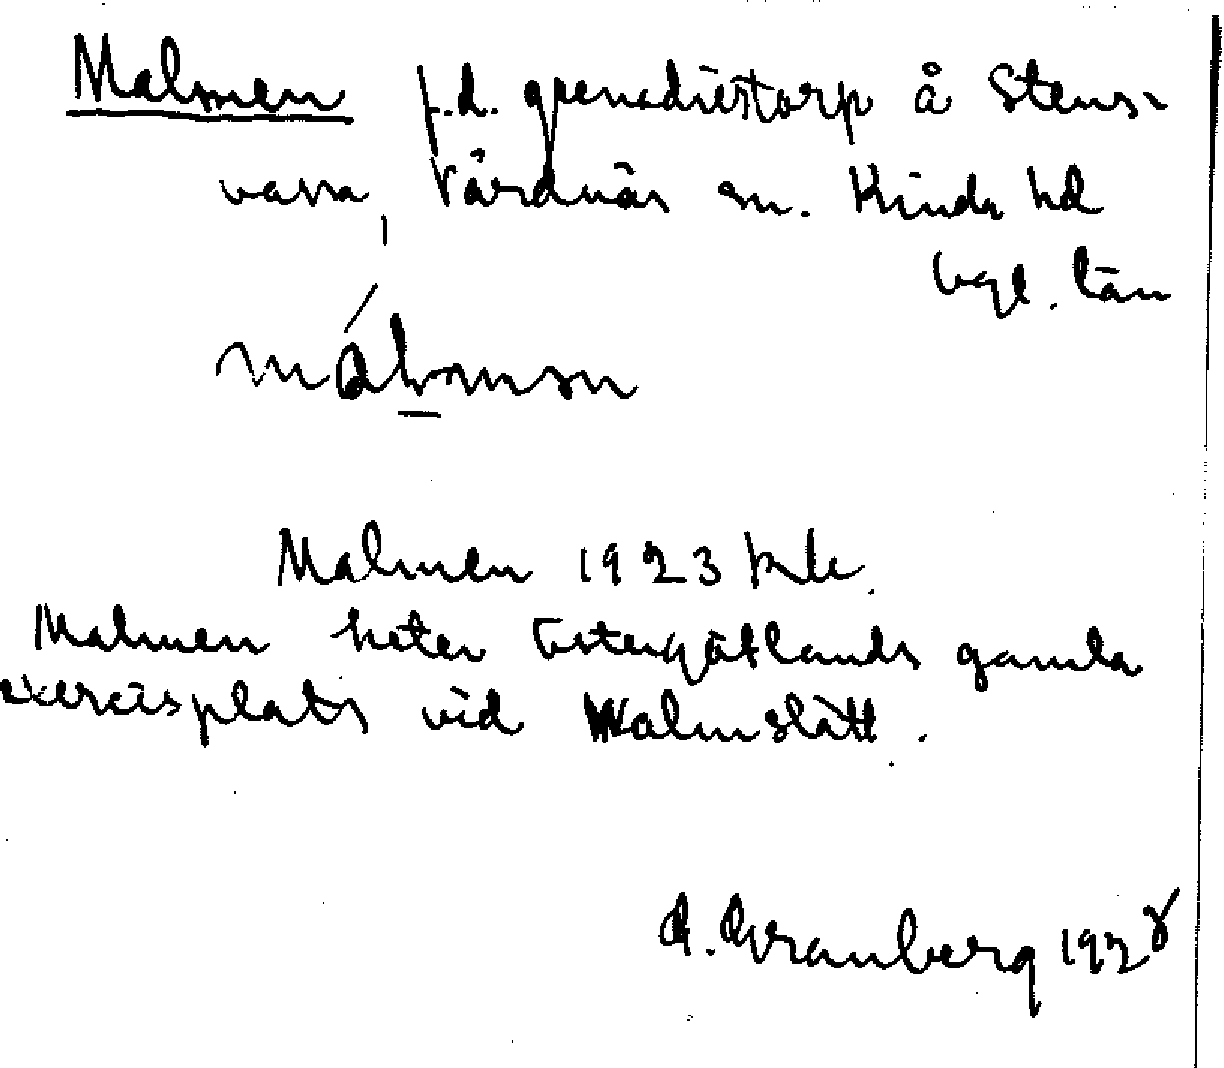 Malmen f.d. grenadiärstorp å Stens-
vassa, Vårdnäs sn. Kinda hd
Ögl. län
Malmen 1923 kble.
Malmen heter Östergötlands gamla
exercisplats vid Malmslätt.
A. Granberg 1928